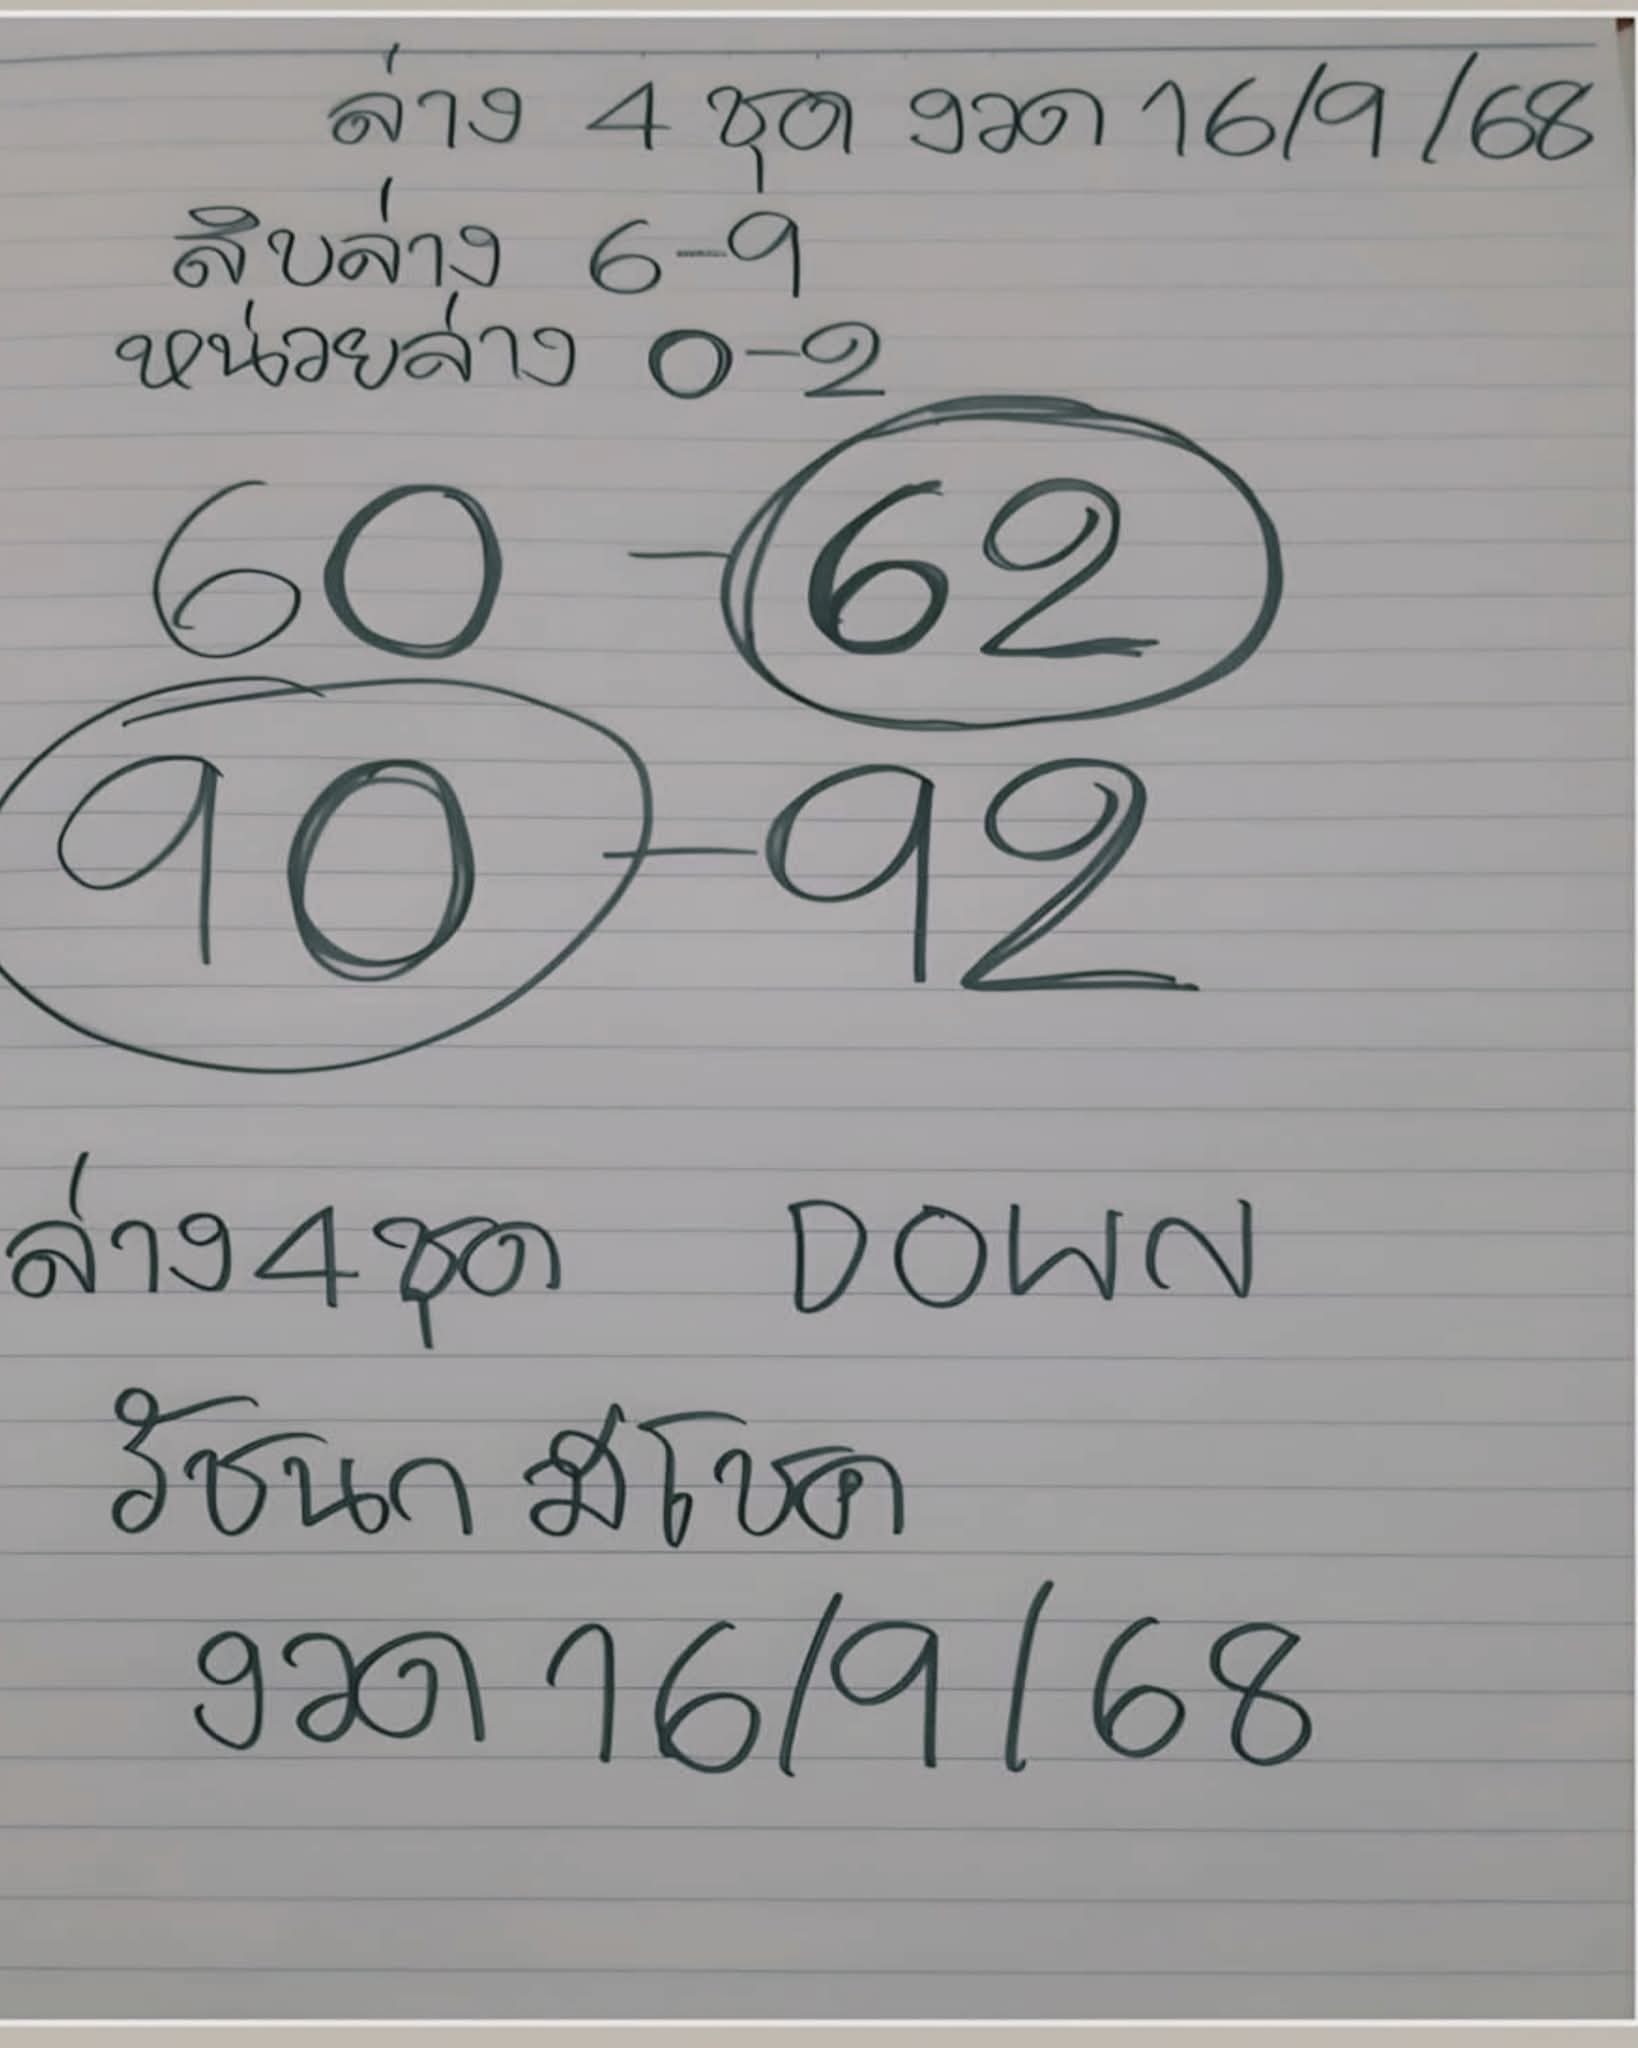 ล่าง 4 ชุด งวด 16/9/68
สิบล่าง 6-9
หน่วยล่าง 0-2
60 - 62
90 - 92
ล่าง 4 ชุด DOWN
รัชนก มีโชค
งวด 16/9/68